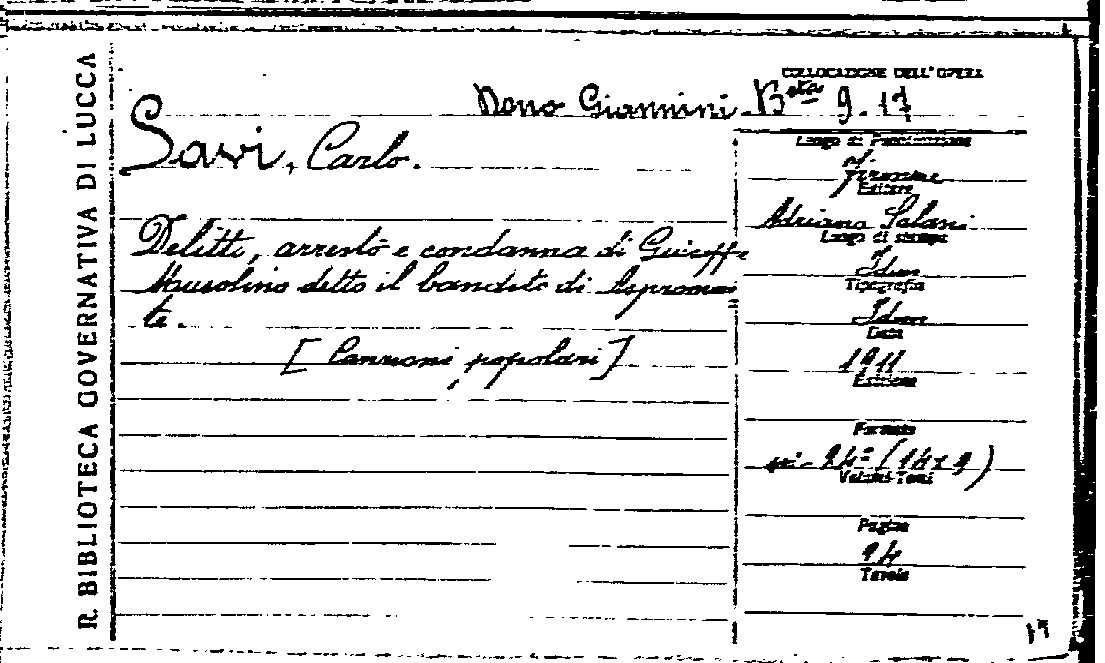 R. BIBLIOTECA GOVERNATIVA DI LUCCA
COLLOCAZIONE DELL'OPERA
Dono Giannini. Bsta 9. 17
Savi, Carlo.
Delitti, arresto e condanna di Giuseppe
Musolino detto il bandito di Aspromon=
te.
[Canzoni popolari]
Luogo di Pubblicazione
Firenze
Editore
Adriano Salani
Luogo di stampa
Idem
Tipografia
Idem
Data
1911
Edizione
Formato
in-24º (14x9)
Volumi-Tomi
Pagine
24
Tavole
17